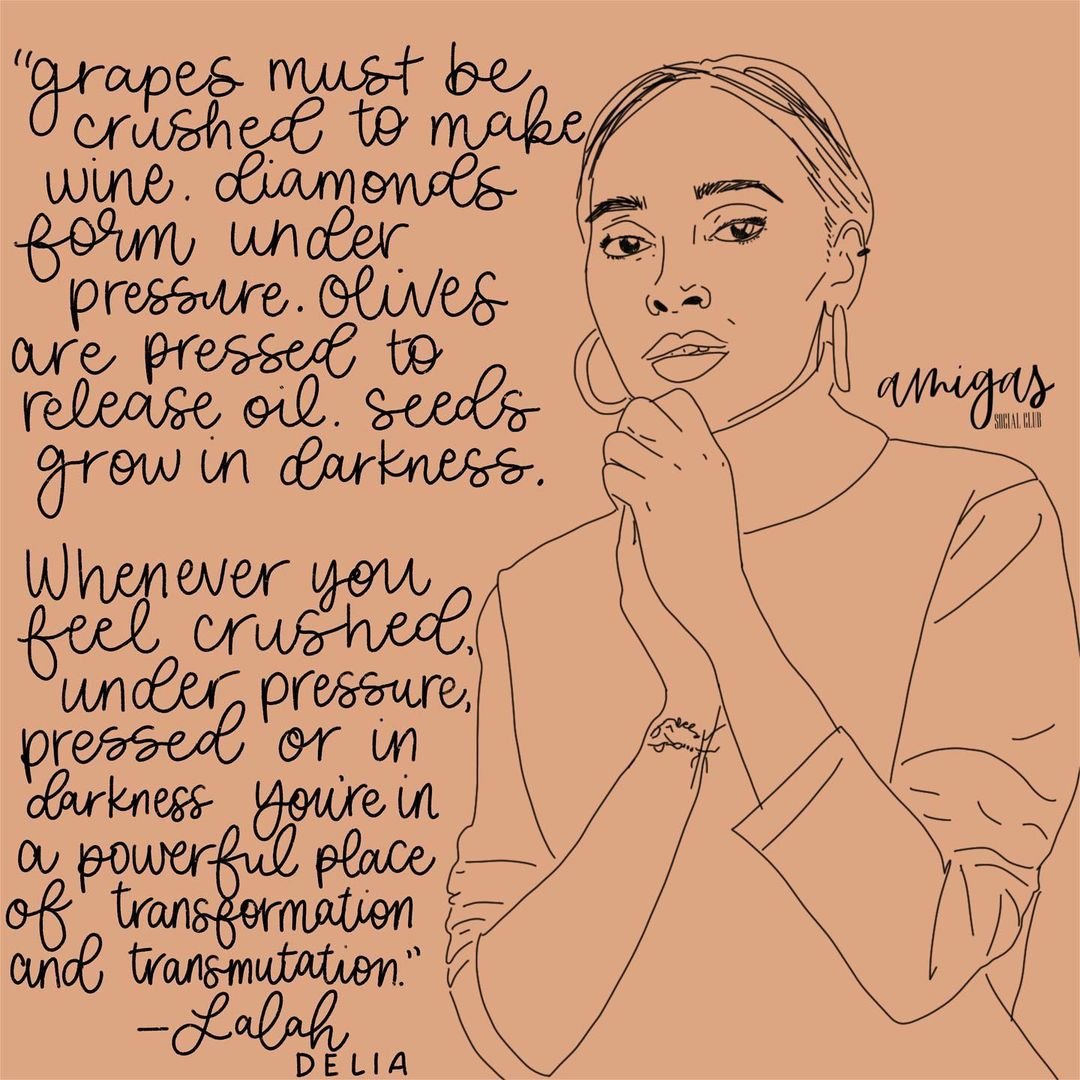 "grapes must be
crushed to make
wine. diamonds
form under
pressure. olives
are pressed to
release oil. seeds
grow in darkness.
Whenever you
feel crushed,
under pressure,
pressed or in
darkness you're in
a powerful place
of transformation
and transmutation."
-Lalah
DELIA
amigas
SOCIAL CLUB